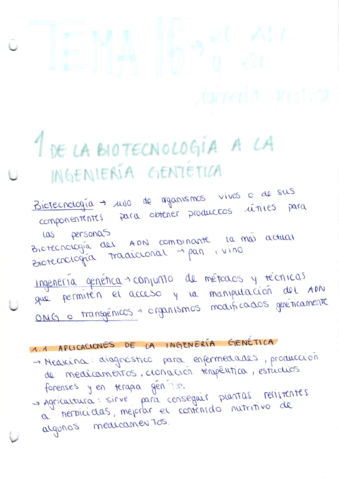 TEMA 16 → el ADN
y la
1 DE LA BIOTECNOLOGÍA A LA
INGENIERÍA GENTÉTICA
Biotecnología → uso de organismos vivos o de sus
componententes para obtener productos útiles para
las personas
Biotecnología del ADN combinante la más actual
Biotecnología tradicional → pan, vino
Ingeniería genética → conjunto de métodos y técnicas
que permiten el acceso y la manipulación del ADN
OMG o transgénicos → organismos modificados genéticamente
1.1 APLICACIONES DE LA INGENIERÍA GENÉTICA
→ Medicina: diagnóstico para enfermedades, producción
de medicamentos, clonación terapéutica, estudios
forenses y en terapia génica.
→ Agricultura: sirve para conseguir plantas resistentes
a herbicidas, mejorar el contenido nutritivo de
algunos medicamentos.